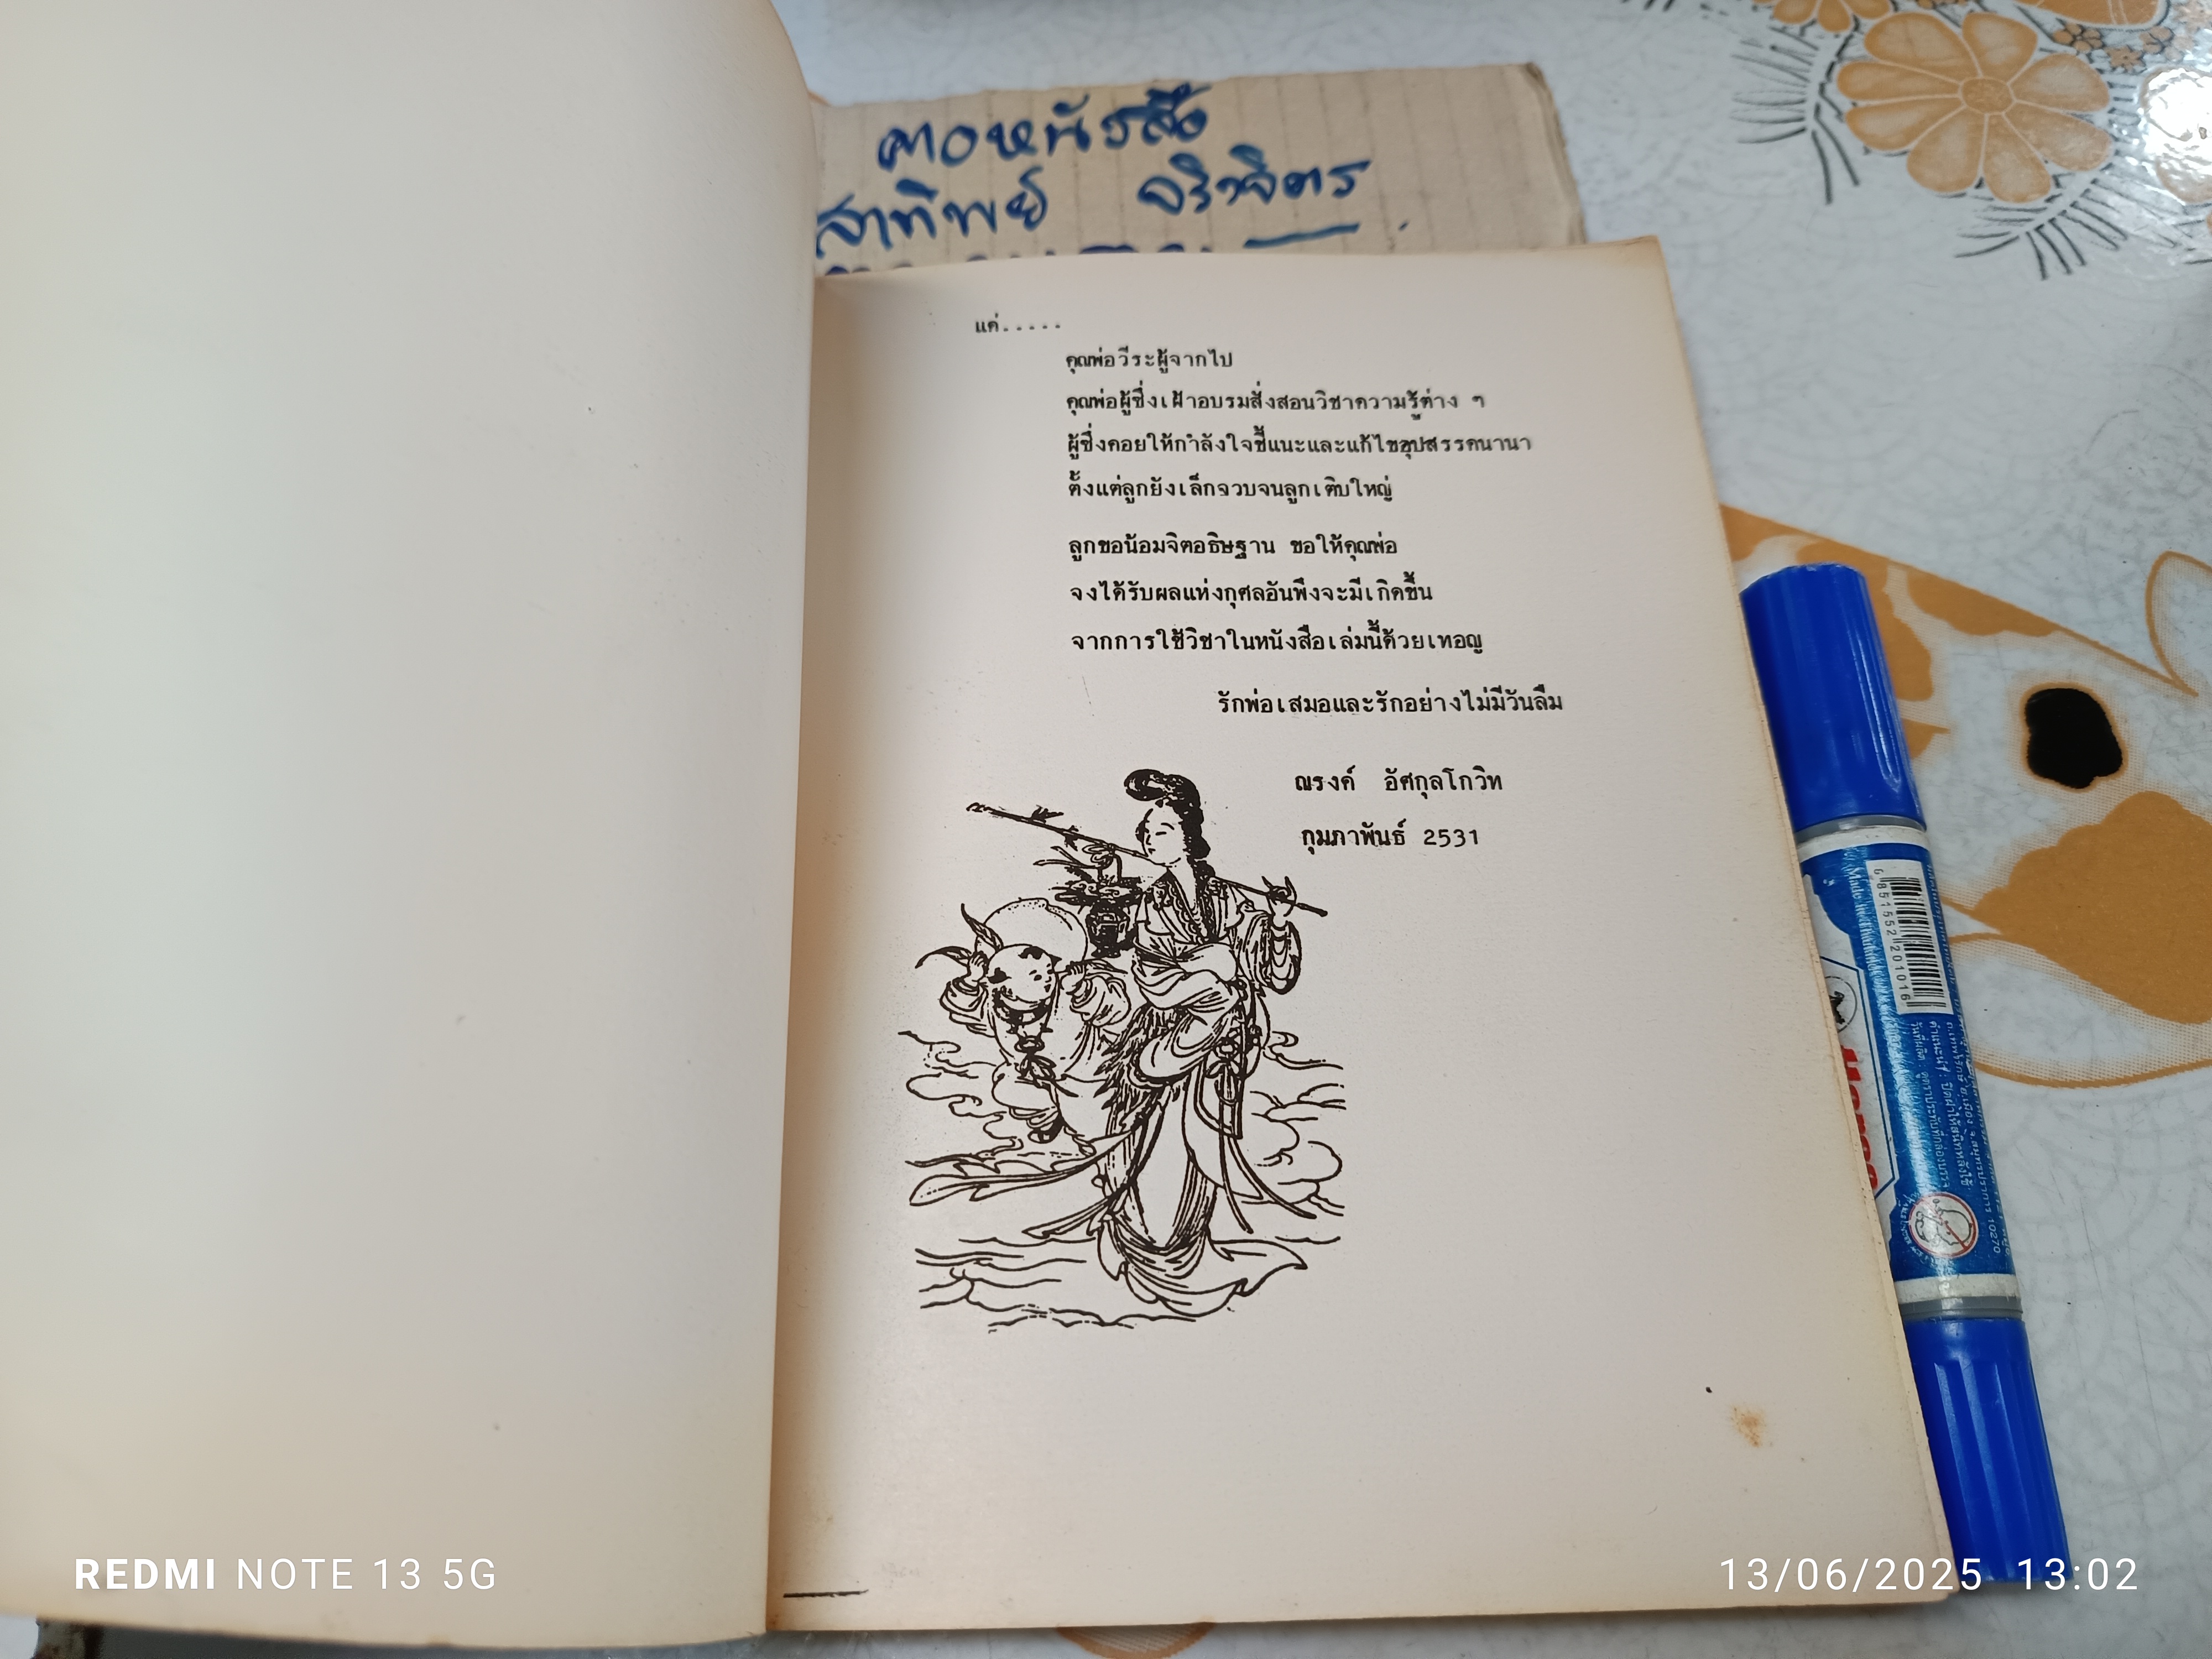 สาทิพย์
แด่.....
คุณพ่อวีระผู้จากไป
คุณพ่อผู้ซึ่งเฝ้าอบรมสั่งสอนวิชาความรู้ต่าง ๆ
ผู้ซึ่งคอยให้กำลังใจชี้แนะและแก้ไขอุปสรรคนานา
ตั้งแต่ลูกยังเล็กจวบจนลูกเติบใหญ่
ลูกขอน้อมจิตอธิษฐาน ขอให้คุณพ่อ
จงได้รับผลแห่งกุศลอันพึงจะมีเกิดขึ้น
จากการใช้วิชาในหนังสือเล่มนี้ด้วยเทอญ
รักพ่อเสมอและรักอย่างไม่มีวันลืม
ณรงค์ อัศกุลโกวิท
กุมภาพันธ์ 2531
6851552201016
REDMI NOTE 13 5G
13/06/2025 13:02